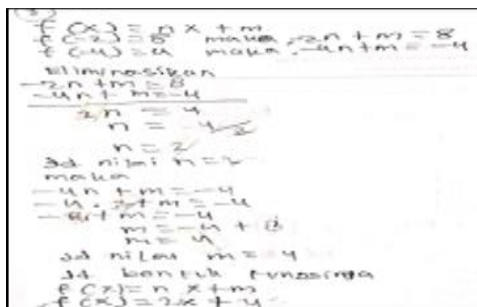 f(x) = n x + m
f(-2) = 8 maka -2n + m = 8
f(-4) = 4 maka -4n + m = -4
Eliminasikan
-2n + m = 8
-4n + m = -4
2n = 4
n = 4/2
n = 2
Jd nilai n = 2
maka
-4n + m = -4
-4 . 2 + m = -4
-8 + m = -4
m = -4 + 8
m = 4
Jd nilai m = 4
Jd bentuk fungsinya
f(x) = n x + m
f(x) = 2x + 4